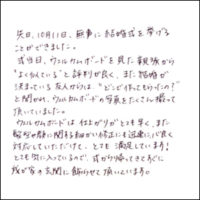 先日、10月11日、無事に結婚式を挙げる
ことができました。
式当日、ウェルカムボードを見た親族から
"よく似ている"と評判が良く、また結婚が
決まっている友人からは、"どこで作ってもらったの?"
と聞かれ、ウェルカムボードの写真をたくさん撮って
頂いていました。
ウェルカムボードは仕上がりがとても早く、また
髪型や顔に関わる細かい修正にも迅速に良く
対応していただけて、とても満足しています!
とても気に入っているので、式から帰ってきてすぐに
我が家の玄関に飾らせて頂いています。